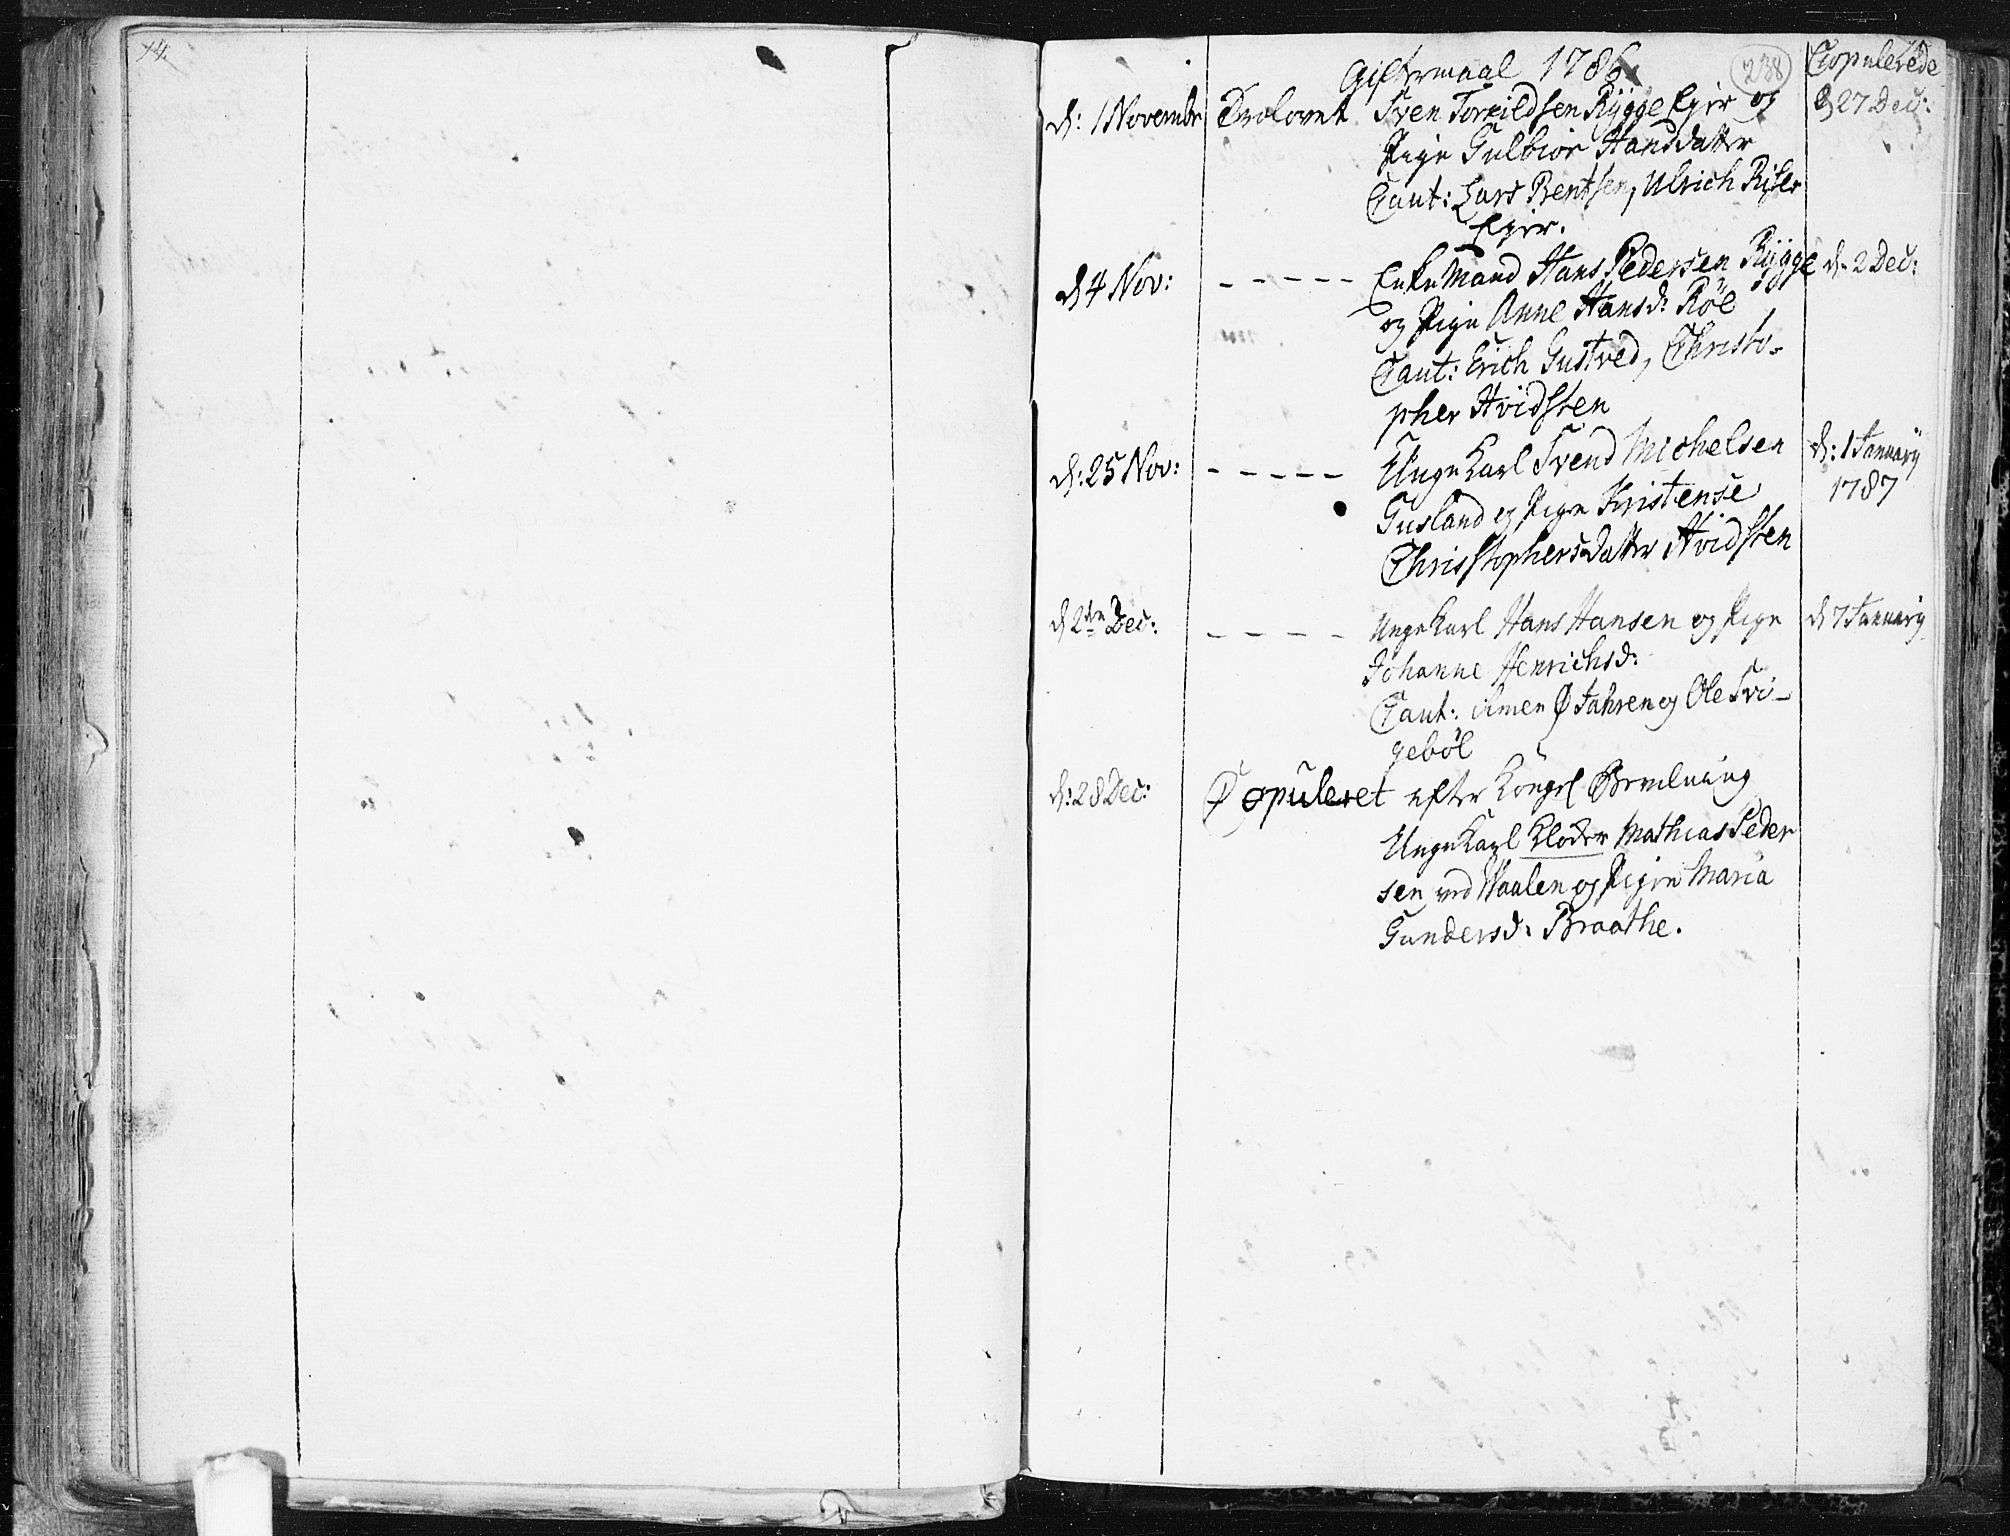 14.
Giftermaal 1786
238
Copulerede
d: 1 Novembr Trolovet Sven Torkildsen Rygge Ejer og d 27 Dec:
Pige Gulbiør Hansdatter
Caut: Lars Bentsen, Ulrich Risler
Ejer.
d 4 Nov: - - - - - Enke Mand Hans Pedersen Rÿgge d. 2 Dec:
og Pige Anne Hansd: Röe
Caut: Erich Gustved, Christo-
pher Hvidsten
d: 25 Nov: - - - - - Unge Karl Svend Michelsen d: 1 Januarÿ
1787
Gusland og Pige Kristense
Christophersdatter Hvidsten
d 2den Dec: - - - - Unge Karl Hans Hansen og Pige d 7 Januarÿ
Johanne Henrichsd:
Caut: Ø Jahren og Ole Svi-
gebøl
d: 28 Dec: Copuleret efter Kongel Bevilning
Unge Karl Kloker Mathias Peder
sen ved Waalen og Pigen Maria
Gundersd: Braathe.